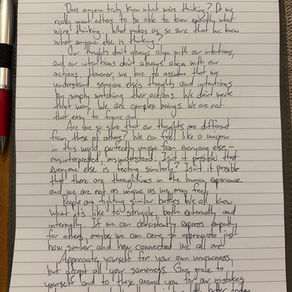 Does anyone truly know what we're thinking? Do we
really want others to be able to know exactly what
we're thinking. What makes us so sure that we know
what anyone else is thinking?
Our thoughts don't always align with our intentions,
and our intentions don't always align with our
actions. However, we love to assume that we
understand someone else's thoughts and intentions
by simply watching their actions. We don't work
that way. We are complex beings. We are not
that easy to figure out.
Are we so sure that our thoughts are different
from those of others? We can feel like a unicorn
in this world, perfectly unique from everyone else –
misinterpreted, misunderstood. Isn't it possible that
everyone else is feeling similarly? Isn't it possible
that there are throughlines in the human experience
and we are not as unique as we may feel?
People are fighting similar battles. We all know
what it's like to struggle, both externally and
internally. If we can consistently express empathy
for others, maybe we can come to appreciate just
how similar and how connected we all are.
Appreciate yourself for your own uniqueness,
but accept all your sameness. Give grace to
yourself and to those around you for our mistakes
better today